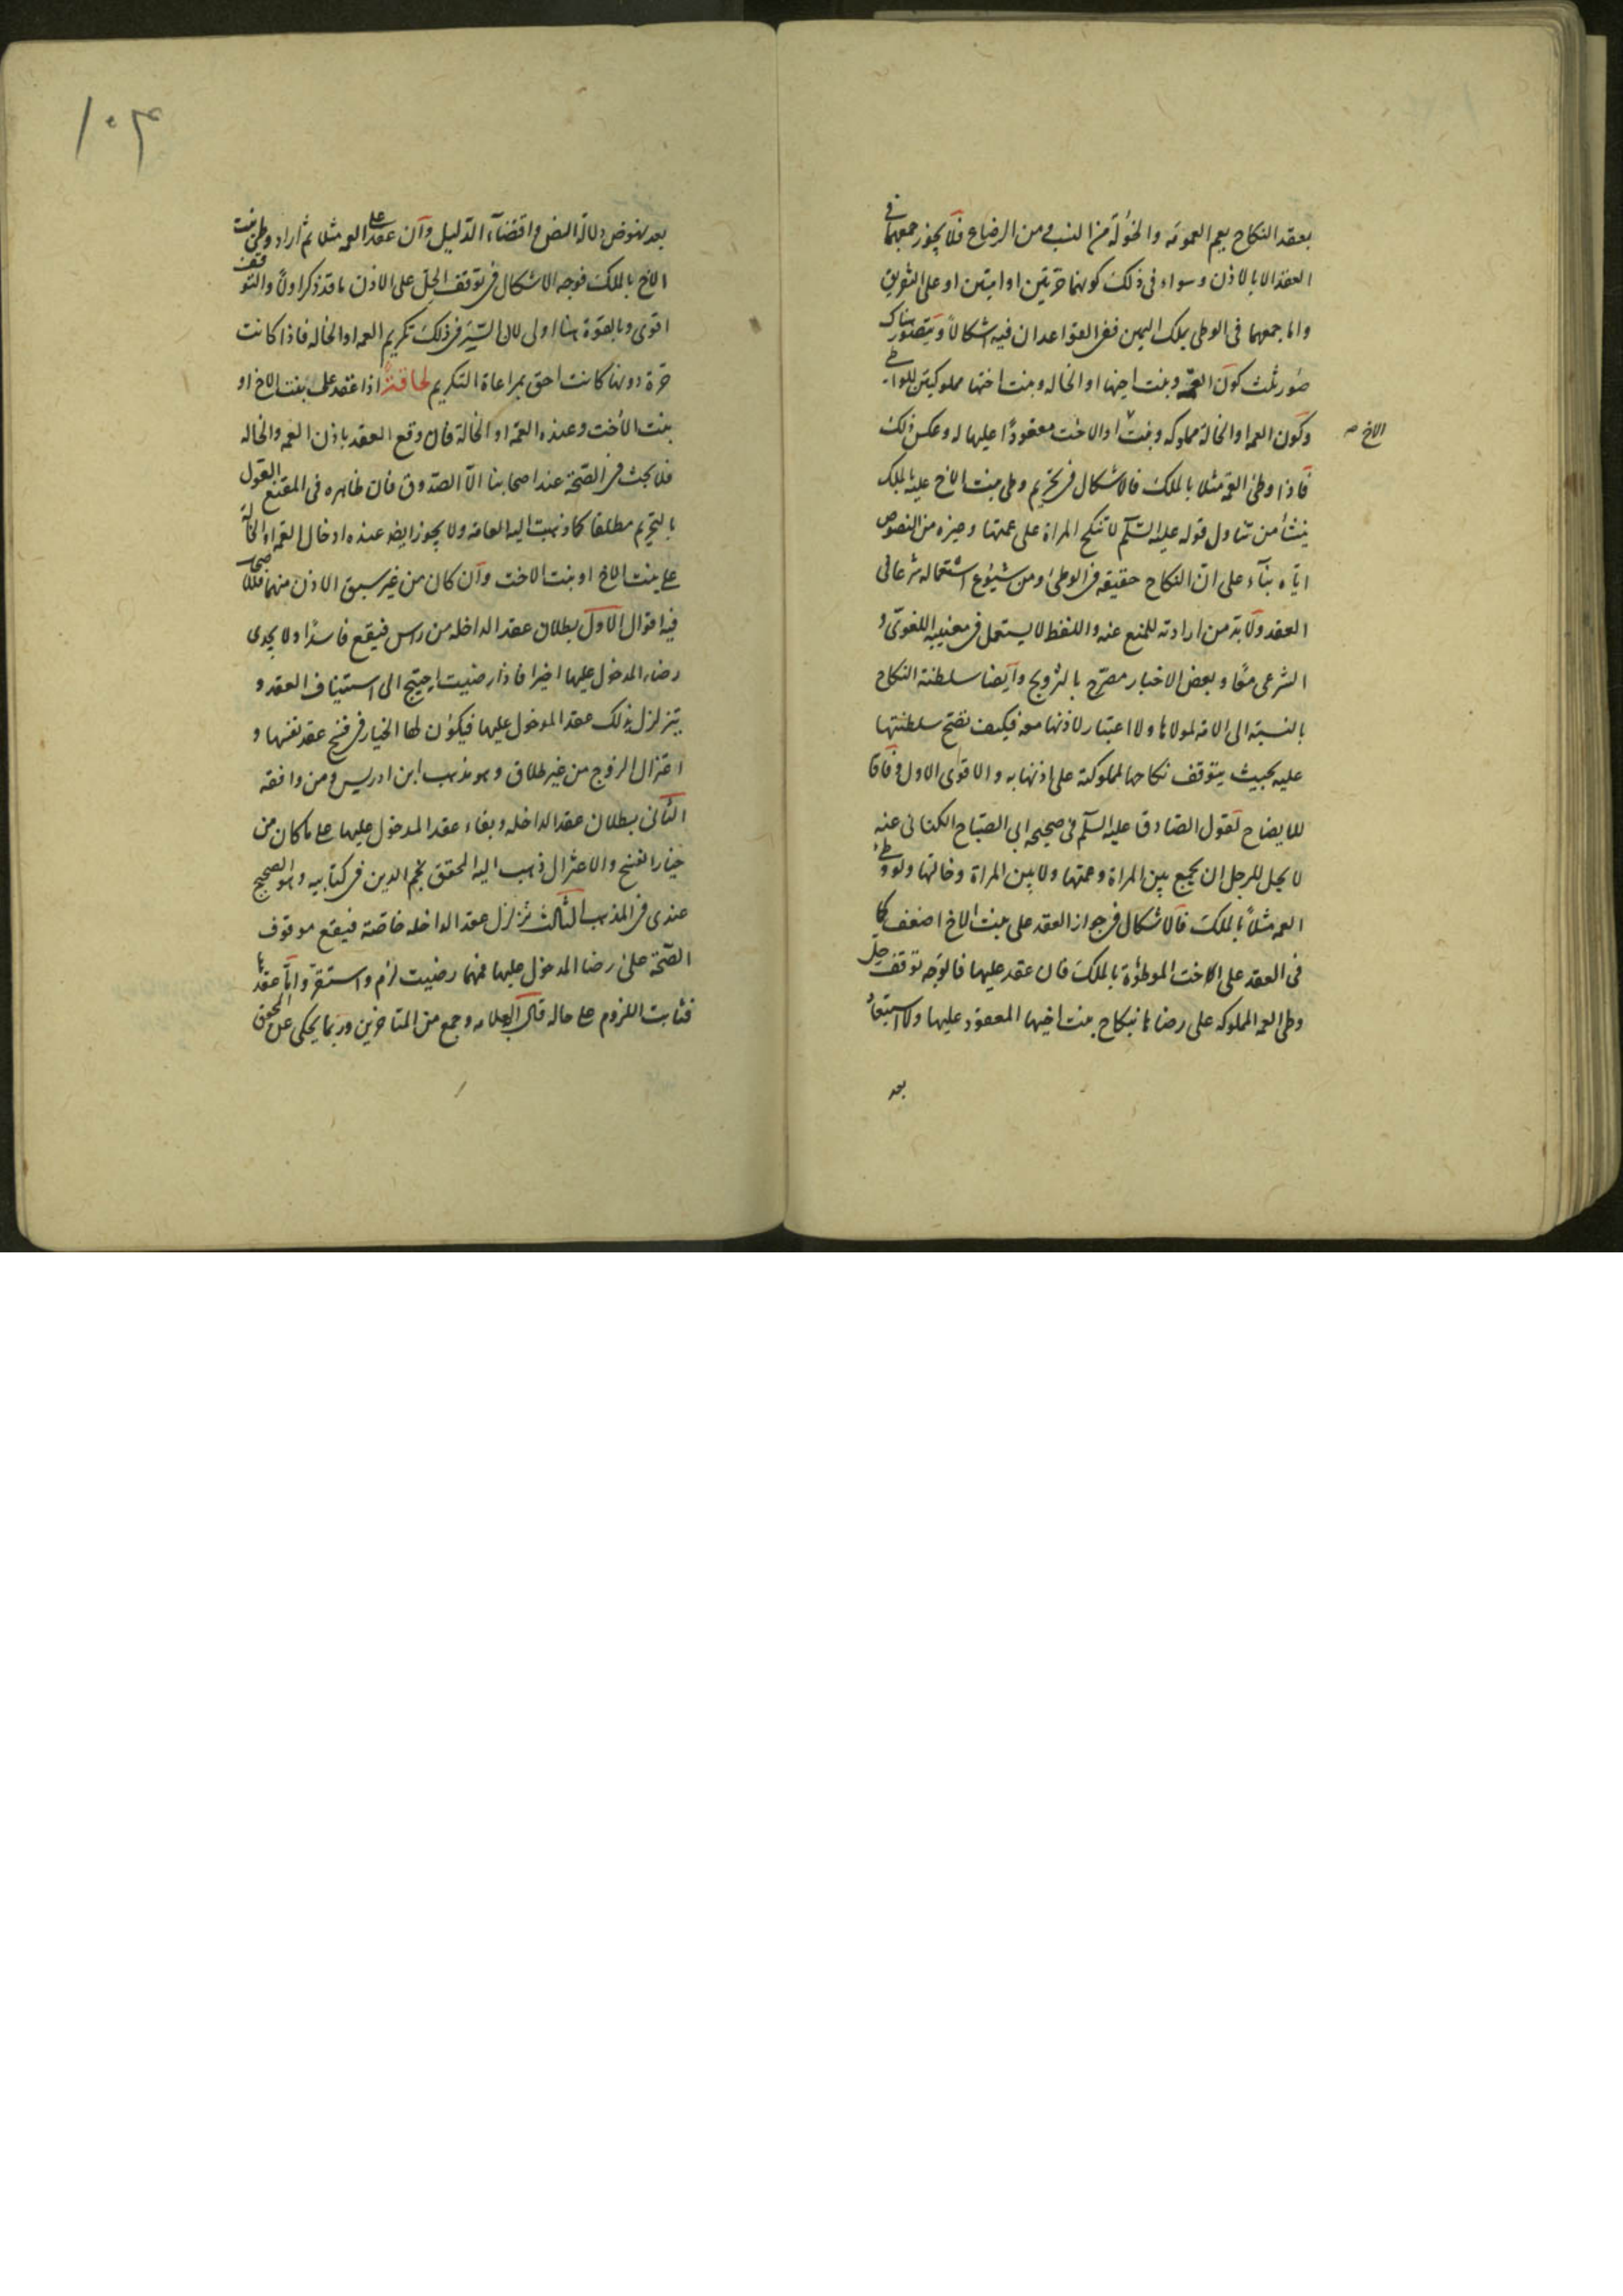 بعقد النكاح يعم العمومة والخؤلة من النسب ومن الرضاع فلا يجوز جمعهما في
العقد الا بالاذن وسواء في ذلك كونهما حرتين او امتين او على التفريق
واما جمعهما في الوطى بملك اليمين ففي القواعد ان فيه اشكالاً ويتصور هناك
صور ثلث كون العمة وبنت اخيها او الخاله وبنت اختها مملوكتين للواطئ
وكون العمه او الخالة مملوكه وبنت او الاخت معقودًا عليها له وعكس ذلك
الاخ صح
فاذا وطئ العمة مثلا بالملك فالاشكال في تحريم وطى بنت الاخ عليه بالملك
ينشأ من تناول قوله عليه السلم لا تنكح المراة على عمتها وغيره من النصوص
اياه بناء على ان النكاح حقيقه في الوطى ومن شيوع استعماله شرعا في
العقد ولا بد من ارادته للمنع عنه واللفظ لا يستعمل في معنييه اللغوي و
الشرعى معًا وبعض الاخبار مصرح بالتزويج وايضا سلطنة النكاح
بالنسبة الى الامة لمولاها ولا اعتبار لاذنها معه فيكف تصح سلطنتها
عليه بحيث يتوقف نكاحها لمملوكته على اذنها به والاقوى الاول وفاقا
للايضاح لقول الصادق عليه السلم في صحيحه ابى الصباح الكنانى عنه
لا يحل للرجل ان يجمع بين المراة وعمتها ولا بين المراة وخالتها ولو وطئ
العمه مثلاً بالملك فالاشكال في جواز العقد على بنت الاخ اضعف كما
في العقد على الاخت الموطؤة بالملك فان عقد عليها فالوجه توقف حل
وطى العمه المملوكه على رضاها بنكاح بنت اخيها المعقود عليها ولا استبعاد
بعد
١٠٤
بعد نهوض دلالة النص واقتضاء الدليل وان عقد على العمه مثلا ثم اراد وطى بنت
الاخ بالملك فوجه الاشكال في توقف الحل على الاذن ما قد ذكر اولاً والتوقف
اقوى وبالقوة هنا اولى لان السر في ذلك تكريم العمه او الخاله فاذا كانت
حرة دونها كانت احق بمراعاة التكريم لحاقة اذا عقد على بنت الاخ او
بنت الأخت وعنده العمة او الخالة فان وقع العقد باذن العمه والخاله
فلا بحث في الصحة عند اصحابنا الا الصدوق فان ظاهره في المقنع القول
بالتحريم مطلقا كما ذهبت اليه العامة ولا يجوز ايضه عنده ادخال العمه او الخالة
على بنت الاخ او بنت الاخت وان كان من غير سبق الاذن منهما فللاصحاب
فيه اقوال الاول بطلان عقد الداخله من راس فيقع فاسدًا ولا يجدى
رضاء المدخول عليها اخيرا فاذا رضيت احتيج الى استيناف العقد و
يتزلزل بذلك عقد المدخول عليها فيكون لها الخيار في فسخ عقد نفسها و
اعتزال الزوج من غير طلاق وهو مذهب ابن ادريس ومن وافقه
الثانى بطلان عقد الداخله وبقاء عقد المدخول عليها على ما كان من
خيار الفسخ والاعتزال ذهب اليه المحقق نجم الدين في كتابيه وهو الصحيح
عندى في المذهب الثالث تزلزل عقد الداخله خاصة فيقع موقوف
الصحة على رضا المدخول عليها فمهما رضيت لزم واستقر واما عقدها
فثابت اللزوم على حاله قال العلامه وجمع من المتاخرين وربما يحكى عن المحقق